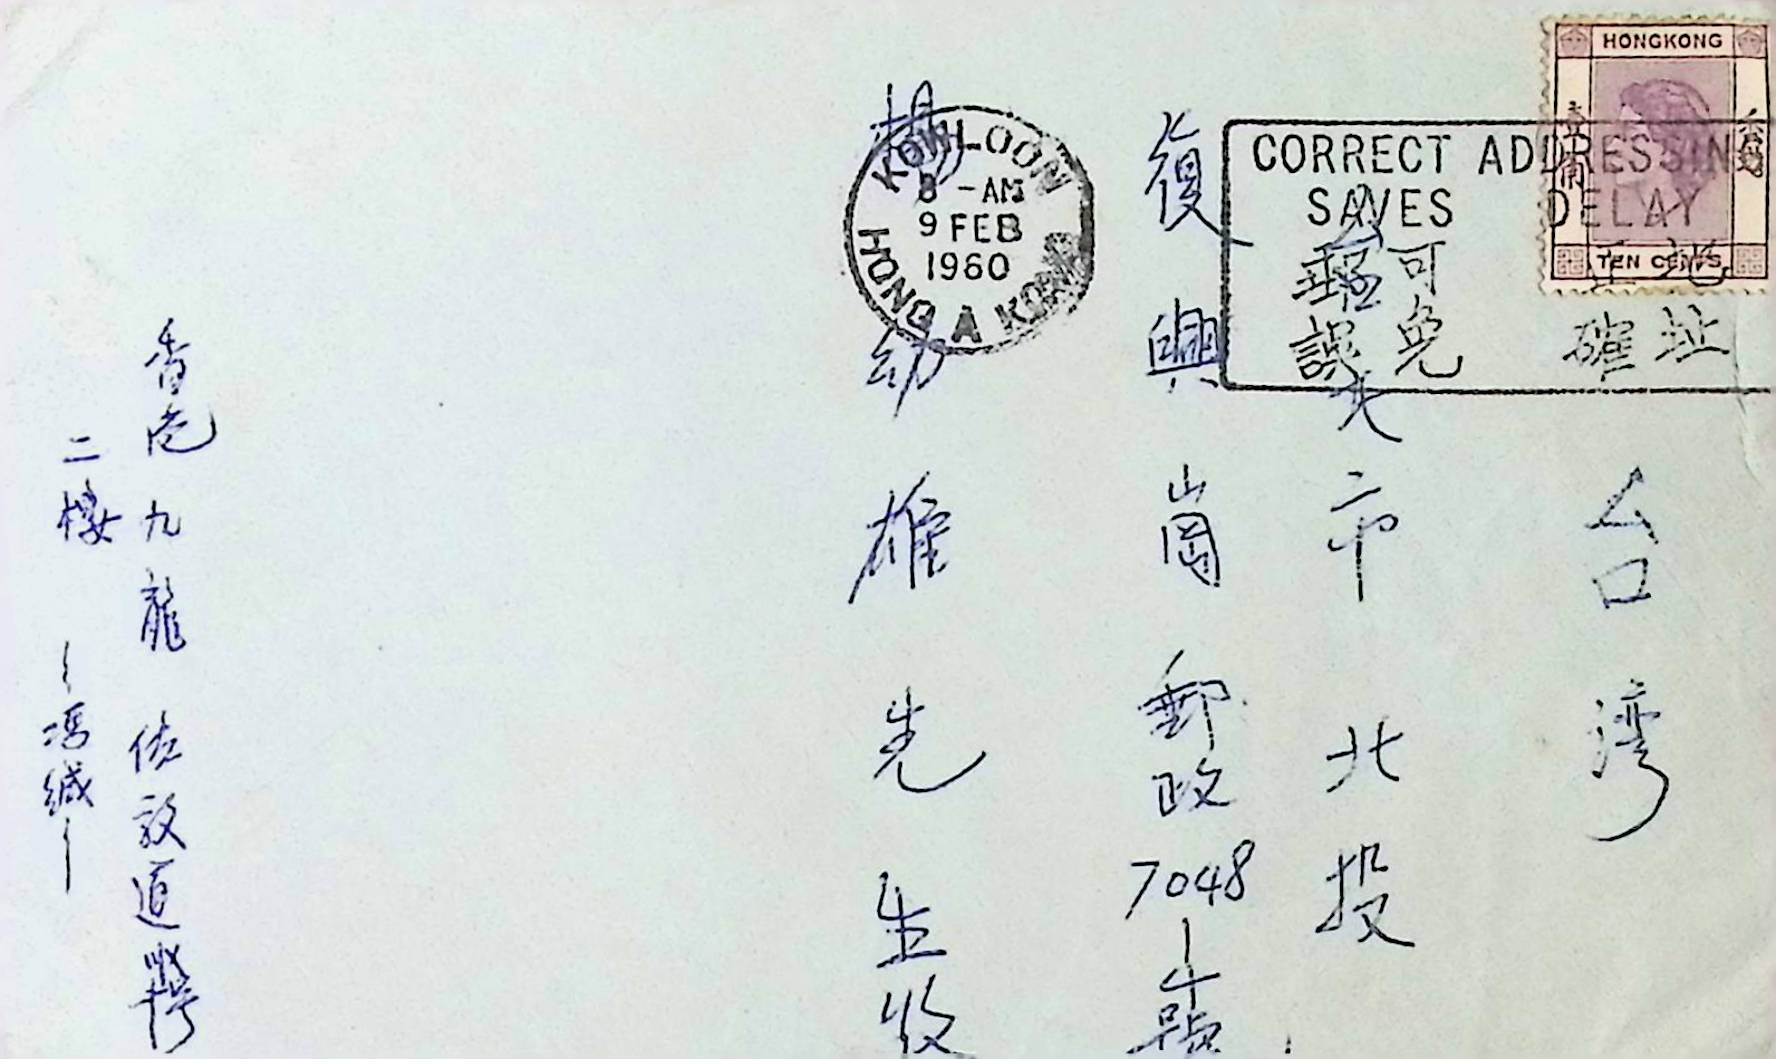 HONGKONG
香港
TEN CENTS
CORRECT ADDRESSIN
SAVES DELAY
地址
正確
可免
郵誤
KOWLOON
8 - AM
9 FEB
1960
HONG A KONG
台湾
北市北投
復興崗郵政7048
楊幼雄先生收
香港九龍佐敦道
二樓
馮緘